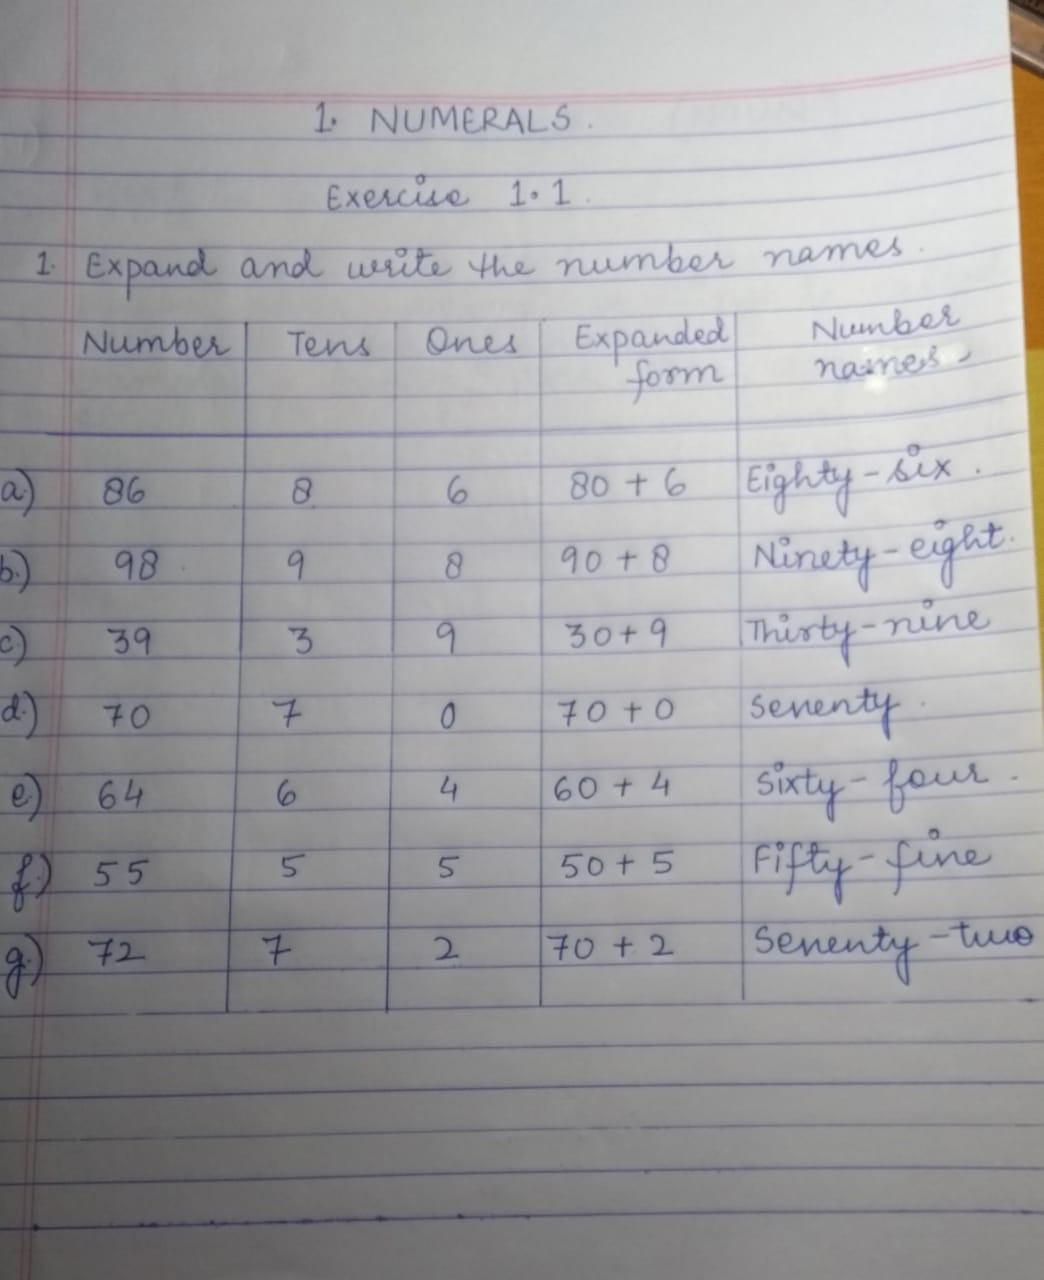 1. NUMERALS.
Exercise 1.1.
1. Expand and write the number names.
Number Tens Ones Expanded form Number names.
a) 86 8 6 80 + 6 Eighty-six.
b.) 98 9 8 90 + 8 Ninety-eight.
c) 39 3 9 30+9 Thirty-nine
d.) 70 7 0 70 + 0 Seventy.
e.) 64 6 4 60 + 4 Sixty-four.
f.) 55 5 5 50 + 5 Fifty-five
g.) 72 7 2 70 + 2 Seventy-two